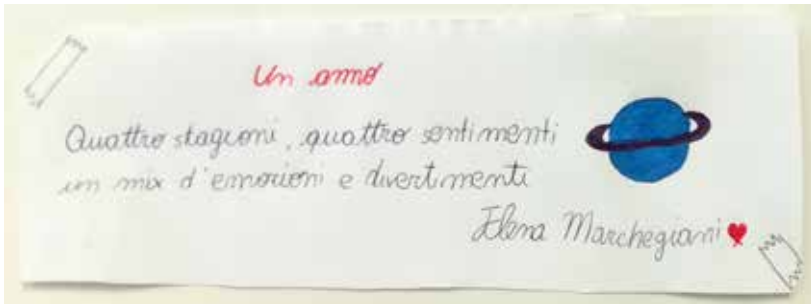 Un anno
Quattro stagioni, quattro sentimenti
un mix d'emozioni e divertimenti
Elena Marchegiani